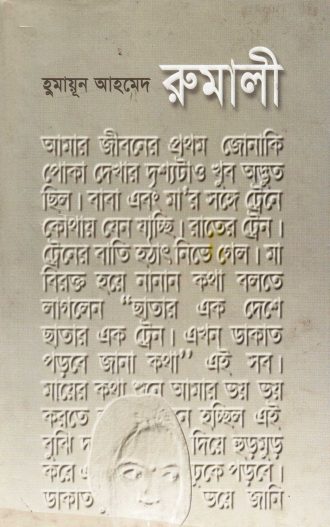 হুমায়ূন আহমেদ রুমালী
আমার জীবনের প্রথম জোনাকি
পোকা দেখার দৃশ্যটাও খুব অদ্ভুত
ছিল। বাবা এবং মা'র সঙ্গে ট্রেনে
কোথায় যেন যাচ্ছি। রাতের ট্রেন।
ট্রেনের বাতি হঠাৎ নিভে গেল। মা
বিরক্ত হয়ে নানান কথা বলতে
লাগলেন “ছাতার এক দেশে
ছাতার এক ট্রেন। এখন ডাকাত
পড়বে জানা কথা” এই সব।
মায়ের কথা শুনে আমার ভয় ভয়
করতে নে হচ্ছিল এই
বুঝি দিয়ে হুড়মুড়
করে ঢুকে পড়বে।
ডাকাত ভয়ে জানি